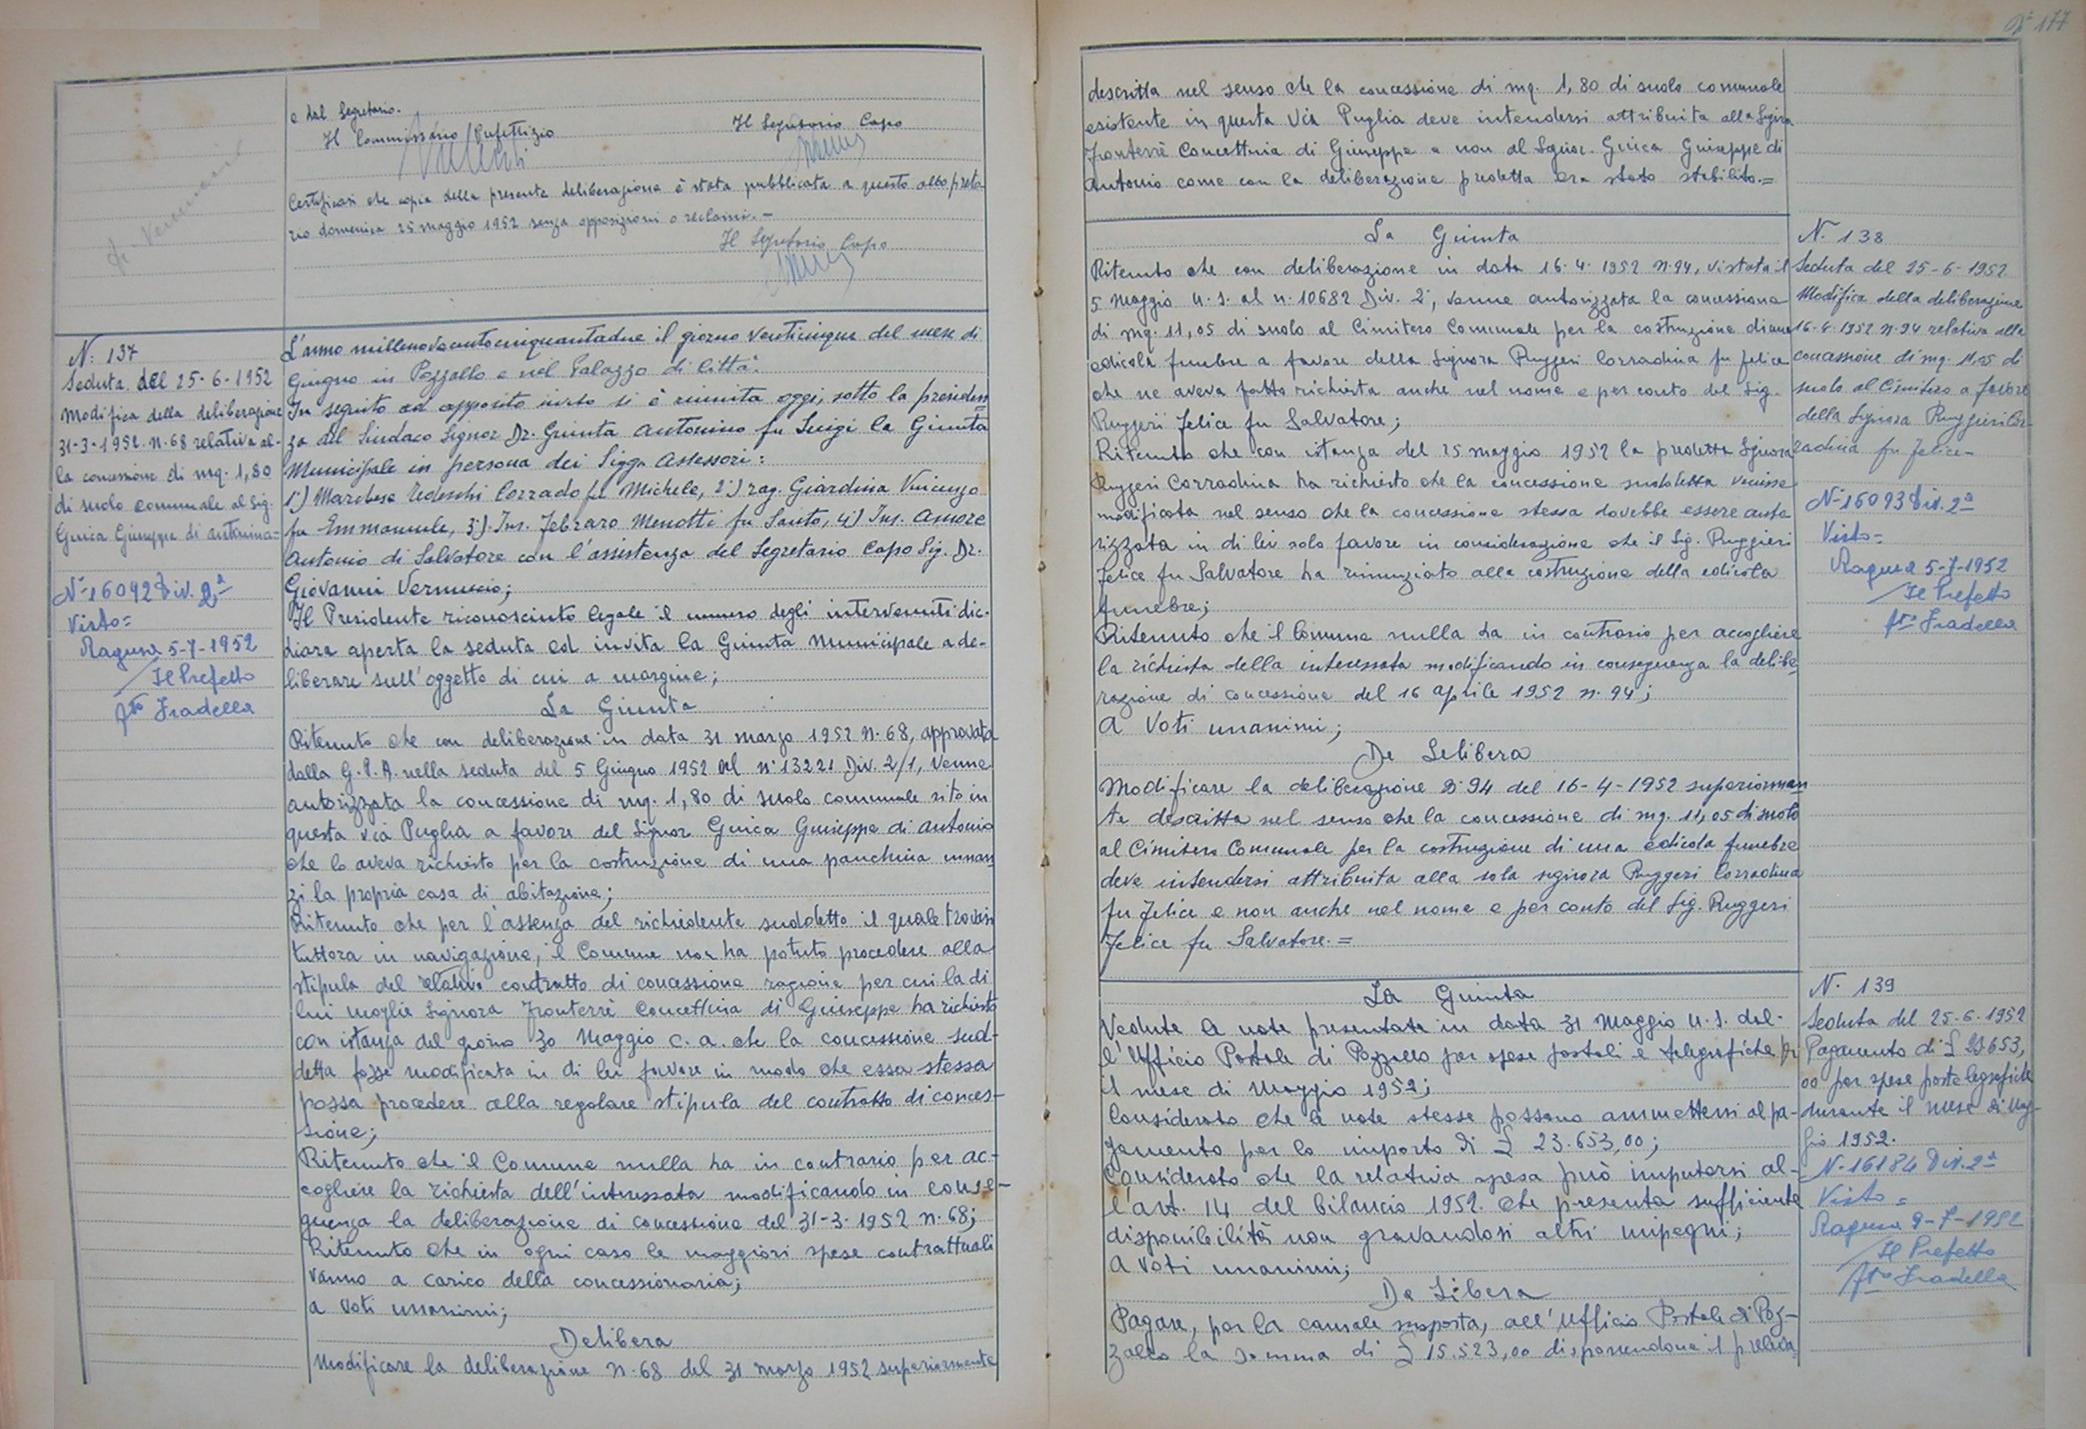 e dal Segretario.
Il Commissario Prefettizio
Il Segretario Capo
Certificasi che copia della presente deliberazione è stata pubblicata a questo albo preto-
rio domenica 25 maggio 1952 senza opposizioni o reclami.-
Il Segretario Capo
N: 137
Seduta del 25-6-1952
Modifica della deliberazione
31-3-1952 N. 68 relativa al-
la concessione di mq. 1,80
di suolo comunale al Sig.
Guica Giuseppe di Antonino=
N° 16092 Div. 2ª
Visto=
Ragusa 5-7-1952
Il Prefetto
fto Fradella
L'anno millenovecentocinquantadue il giorno venticinque del mese di
Giugno in Pozzallo e nel Palazzo di Città.
In seguito ad apposito invito si è riunita oggi, sotto la presiden
za del Sindaco Signor Dr. Giunta Antonino fu Luigi la Giunta
Municipale in persona dei Sigg. Assessori:
1°) Marchese Tedeschi Corrado fu Michele, 2°) rag. Giardina Vincenzo
fu Emmanuele, 3°) Ins. Febraro Menotti fu Santo, 4°) Ins. Amore
Antonio di Salvatore con l'assistenza del Segretario Capo Sig. Dr.
Giovanni Vernuccio;
Il Presidente riconosciuto legale il numero degli intervenuti dic-
hiara aperta la seduta ed invita la Giunta Municipale a de-
liberare sull'oggetto di cui a margine;
La Giunta
Ritenuto che con deliberazione in data 31 marzo 1952 N. 68, approvata
dalla G.P.A. nella seduta del 5 Giugno 1952 al n° 13221 Div. 2/1, venne
autorizzata la concessione di mq. 1,80 di suolo comunale sito in
questa via Puglia a favore del Signor Guica Giuseppe di Antonio
che lo aveva richiesto per la costruzione di una panchina innan
zi la propria casa di abitazione;
Ritenuto che per l'assenza del richiedente suddetto il quale trovasi
tuttora in navigazione, il Comune non ha potuto procedere alla
stipula del relativo contratto di concessione ragione per cui la di
lui moglie Signora Fronterrè Concettina di Giuseppe ha richiesto
con istanza del giorno 30 Maggio c.a. che la concessione sud-
detta fosse modificata in di lei favore in modo che essa stessa
possa procedere alla regolare stipula del contratto di conces-
sione;
Ritenuto che il Comune nulla ha in contrario per ac-
cogliere la richiesta dell'interessata modificando in conse-
guenza la deliberazione di concessione del 31-3-1952 N. 68;
Ritenuto che in ogni caso le maggiori spese contrattuali
vanno a carico della concessionaria;
a voti unanimi;
Delibera
Modificare la deliberazione N. 68 del 31 marzo 1952 superiormente
177
descritta nel senso che la concessione di mq. 1,80 di suolo comunale
esistente in questa Via Puglia deve intendersi attribuita alla Signora
Fronterrè Concettina di Giuseppe e non al Signor Guica Giuseppe di
Antonio come con la deliberazione predetta era stato stabilito.=
La Giunta
Ritenuto che con deliberazione in data 16.4.1952 N. 94, vistata il
5 Maggio u.s. al n. 10682 Div. 2ª, venne autorizzata la concessione
di mq. 11,05 di suolo al Cimitero Comunale per la costruzione di una
edicola funebre a favore della Signora Ruggeri Corradina fu Felice
che ne aveva fatto richiesta anche nel nome e per conto del Sig.
Ruggeri Felice fu Salvatore;
Ritenuto che con istanza del 25 maggio 1952 la predetta Signora
Ruggeri Corradina ha richiesto che la concessione suddetta venisse
modificata nel senso che la concessione stessa dovrebbe essere auto
rizzata in di lei solo favore in considerazione che il Sig. Ruggieri
Felice fu Salvatore ha rinunziato alla costruzione della edicola
funebre;
Ritenuto che il Comune nulla ha in contrario per accogliere
la richiesta della interessata modificando in conseguenza la delibe
razione di concessione del 16 aprile 1952 N. 94;
A Voti unanimi;
De Libera
Modificare la deliberazione N° 94 del 16-4-1952 superiormen
te descritta nel senso che la concessione di mq. 11,05 di suolo
al Cimitero Comunale per la costruzione di una edicola funebre
deve intendersi attribuita alla sola signora Ruggeri Corradina
fu Felice e non anche nel nome e per conto del Sig. Ruggeri
Felice fu Salvatore.=
N. 138
Seduta del 25-6-1952
Modifica della deliberazione
16-4-1952 N. 94 relativa alla
concessione di mq. 11.05 di
suolo al Cimitero a favore
della Signora Ruggieri Cor-
radina fu Felice-
N° 16093 Div. 2ª
Visto=
Ragusa 5-7-1952
Il Prefetto
fto Fradella
La Giunta
Vedute le note presentate in data 31 Maggio u.s. dal-
l'Ufficio Postale di Pozzallo per spese postali e telegrafiche per
il mese di Maggio 1952;
Considerato che le note stesse possono ammettersi al pa-
gamento per lo importo di £ 23.653,00;
Considerato che la relativa spesa può imputarsi al-
l'art. 14 del bilancio 1952 che presenta sufficiente
disponibilità non gravandosi altri impegni;
A voti unanimi;
De Libera
Pagare, per la causale suesposta, all'Ufficio Postale di Poz-
zallo la somma di £ 15.523,00 disponendone il preleva
N. 139
Seduta del 25.6.1952
Pagamento di £ 23653,
00 per spese postelegrafiche
durante il mese di Mag-
gio 1952.
N. 16184 Div. 2ª
Visto=
Ragusa 9-7-1952
Il Prefetto
fto Fradella